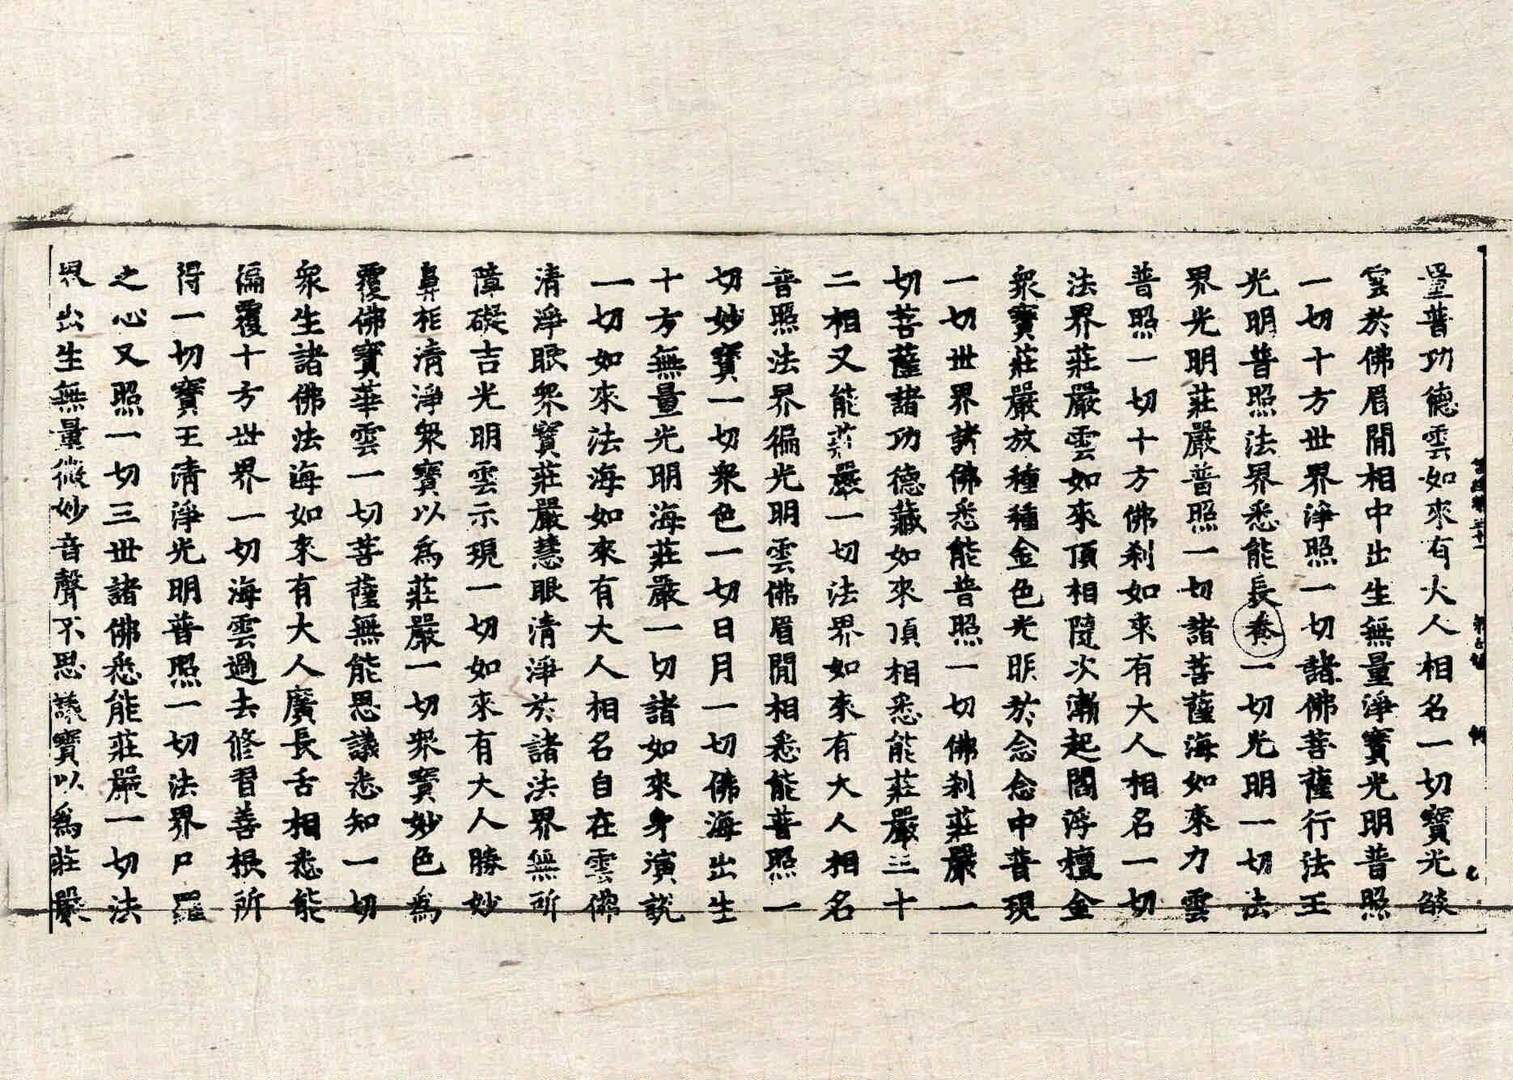 量普功德雲如來有大人相名一切寶光𦦨
雲於佛眉閒相中出生無量淨寶光明普照
一切十方世界淨照一切諸佛菩薩行法王
光明普照法界悉能長養一切光明一切法
界光明莊嚴普照一切諸菩薩海如來力雲
普照一切十方佛刹如來有大人相名一切
法界莊嚴雲如來頂相隨次漸起閻浮檀金
衆寶莊嚴放種種金色光明於念念中普現
一切世界諸佛悉能普照一切佛刹莊嚴一
切菩薩諸功德藏如來頂相悉能莊嚴三十
二相又能莊嚴一切法界如來有大人相名
普照法界徧光明雲佛眉閒相悉能普照一
切妙寶一切衆色一切日月一切佛海出生
十方無量光明海莊嚴一切諸如來身演說
一切如來法海如來有大人相名自在雲佛
清淨眼衆寶莊嚴慧眼清淨於諸法界無所
障礙吉光明雲示現一切如來有大人勝妙
鼻相清淨衆寶以爲莊嚴一切衆寶妙色爲
覆佛寶華雲一切菩薩無能思議悉知一切
衆生諸佛法海如來有大人廣長舌相悉能
徧覆十方世界一切海雲過去修習善根所
得一切寶王清淨光明普照一切法界尸羅
之心又照一切三世諸佛悉能莊嚴一切法
界出生無量微妙音聲不思議寶以爲莊嚴